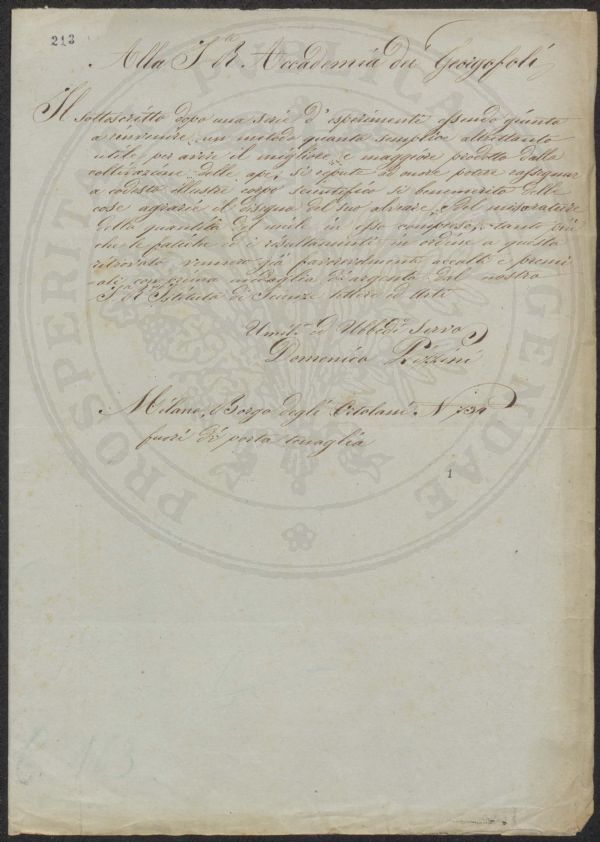 213
Alla I. R. Accademia dei Georgofili
Il sottoscritto dopo una serie d'esperimenti essendo giunto
a rinvenire un metodo quanto semplice altrettanto
utile per avere il migliore e maggiore prodotto dalla
coltivazione delle api, si reputa ad onore potere rassegnare
a codesto illustre corpo scientifico si benemerito delle
cose agrarie il disegno del suo alveare, e del misuratore
della quantità del miele in esso compreso, tanto più
che le fatiche ed i risultamenti in ordine a questo
ritrovato vennero già favorevolmente accolti e premi
ati con prima medaglia d'argento dal nostro
I. R. Istituto di Scienze lettere ed Arti
Umil. ed Ubbid. Servo
Domenico Rizzini
Milano, Borgo degli Ortolani N 
fuori di porta tenaglia
1
PROSPERITATI PUBLICAE AUGENDAE